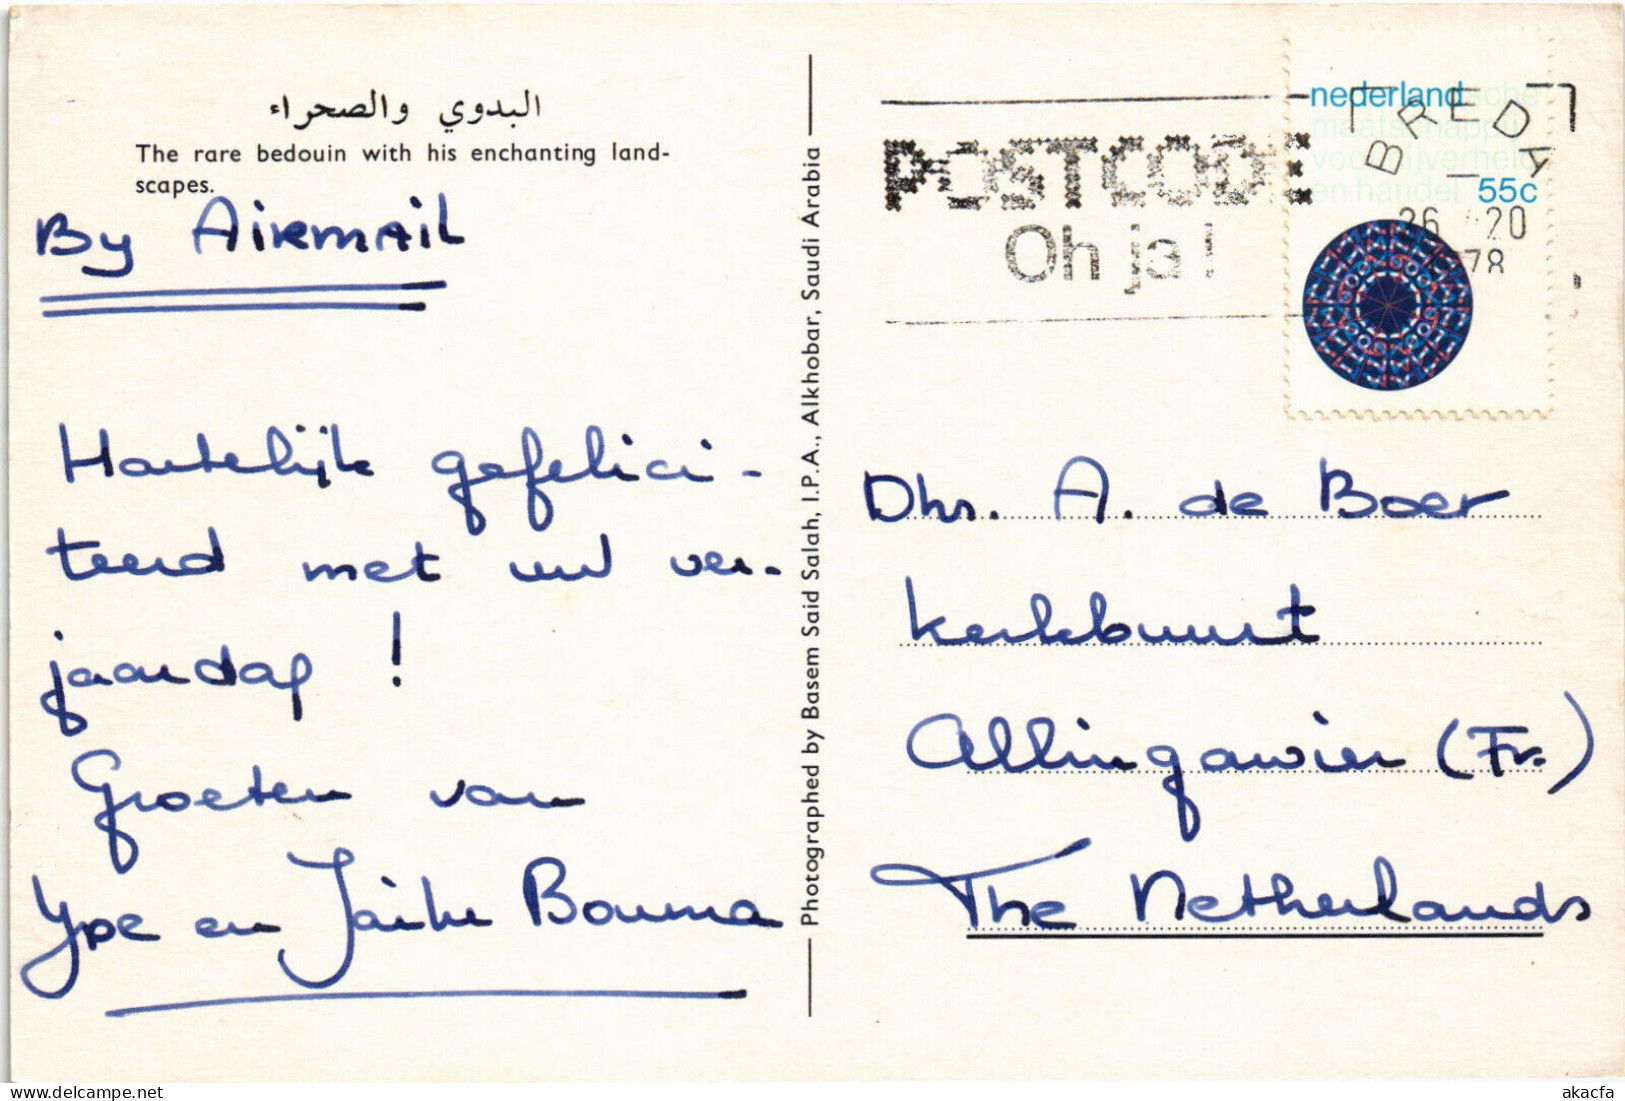 البدوي والصحراء
The rare bedouin with his enchanting land-
scapes.
By Airmail
Hartelijk gefelici-
teerd met uw ver-
jaardag !
Groeten van
Ype en Jaike Bouma
Photographed by Basem Said Salah, I.P.A., Alkhobar, Saudi Arabia
POSTCODE
Oh ja !
nederlandsche
maatschappij
voor nijverheid
en handel
55c
BREDA
26 20
78
Dhr. A. de Boer
Kerkbuurt
Allingawier (Fr.)
The Netherlands
akacfa